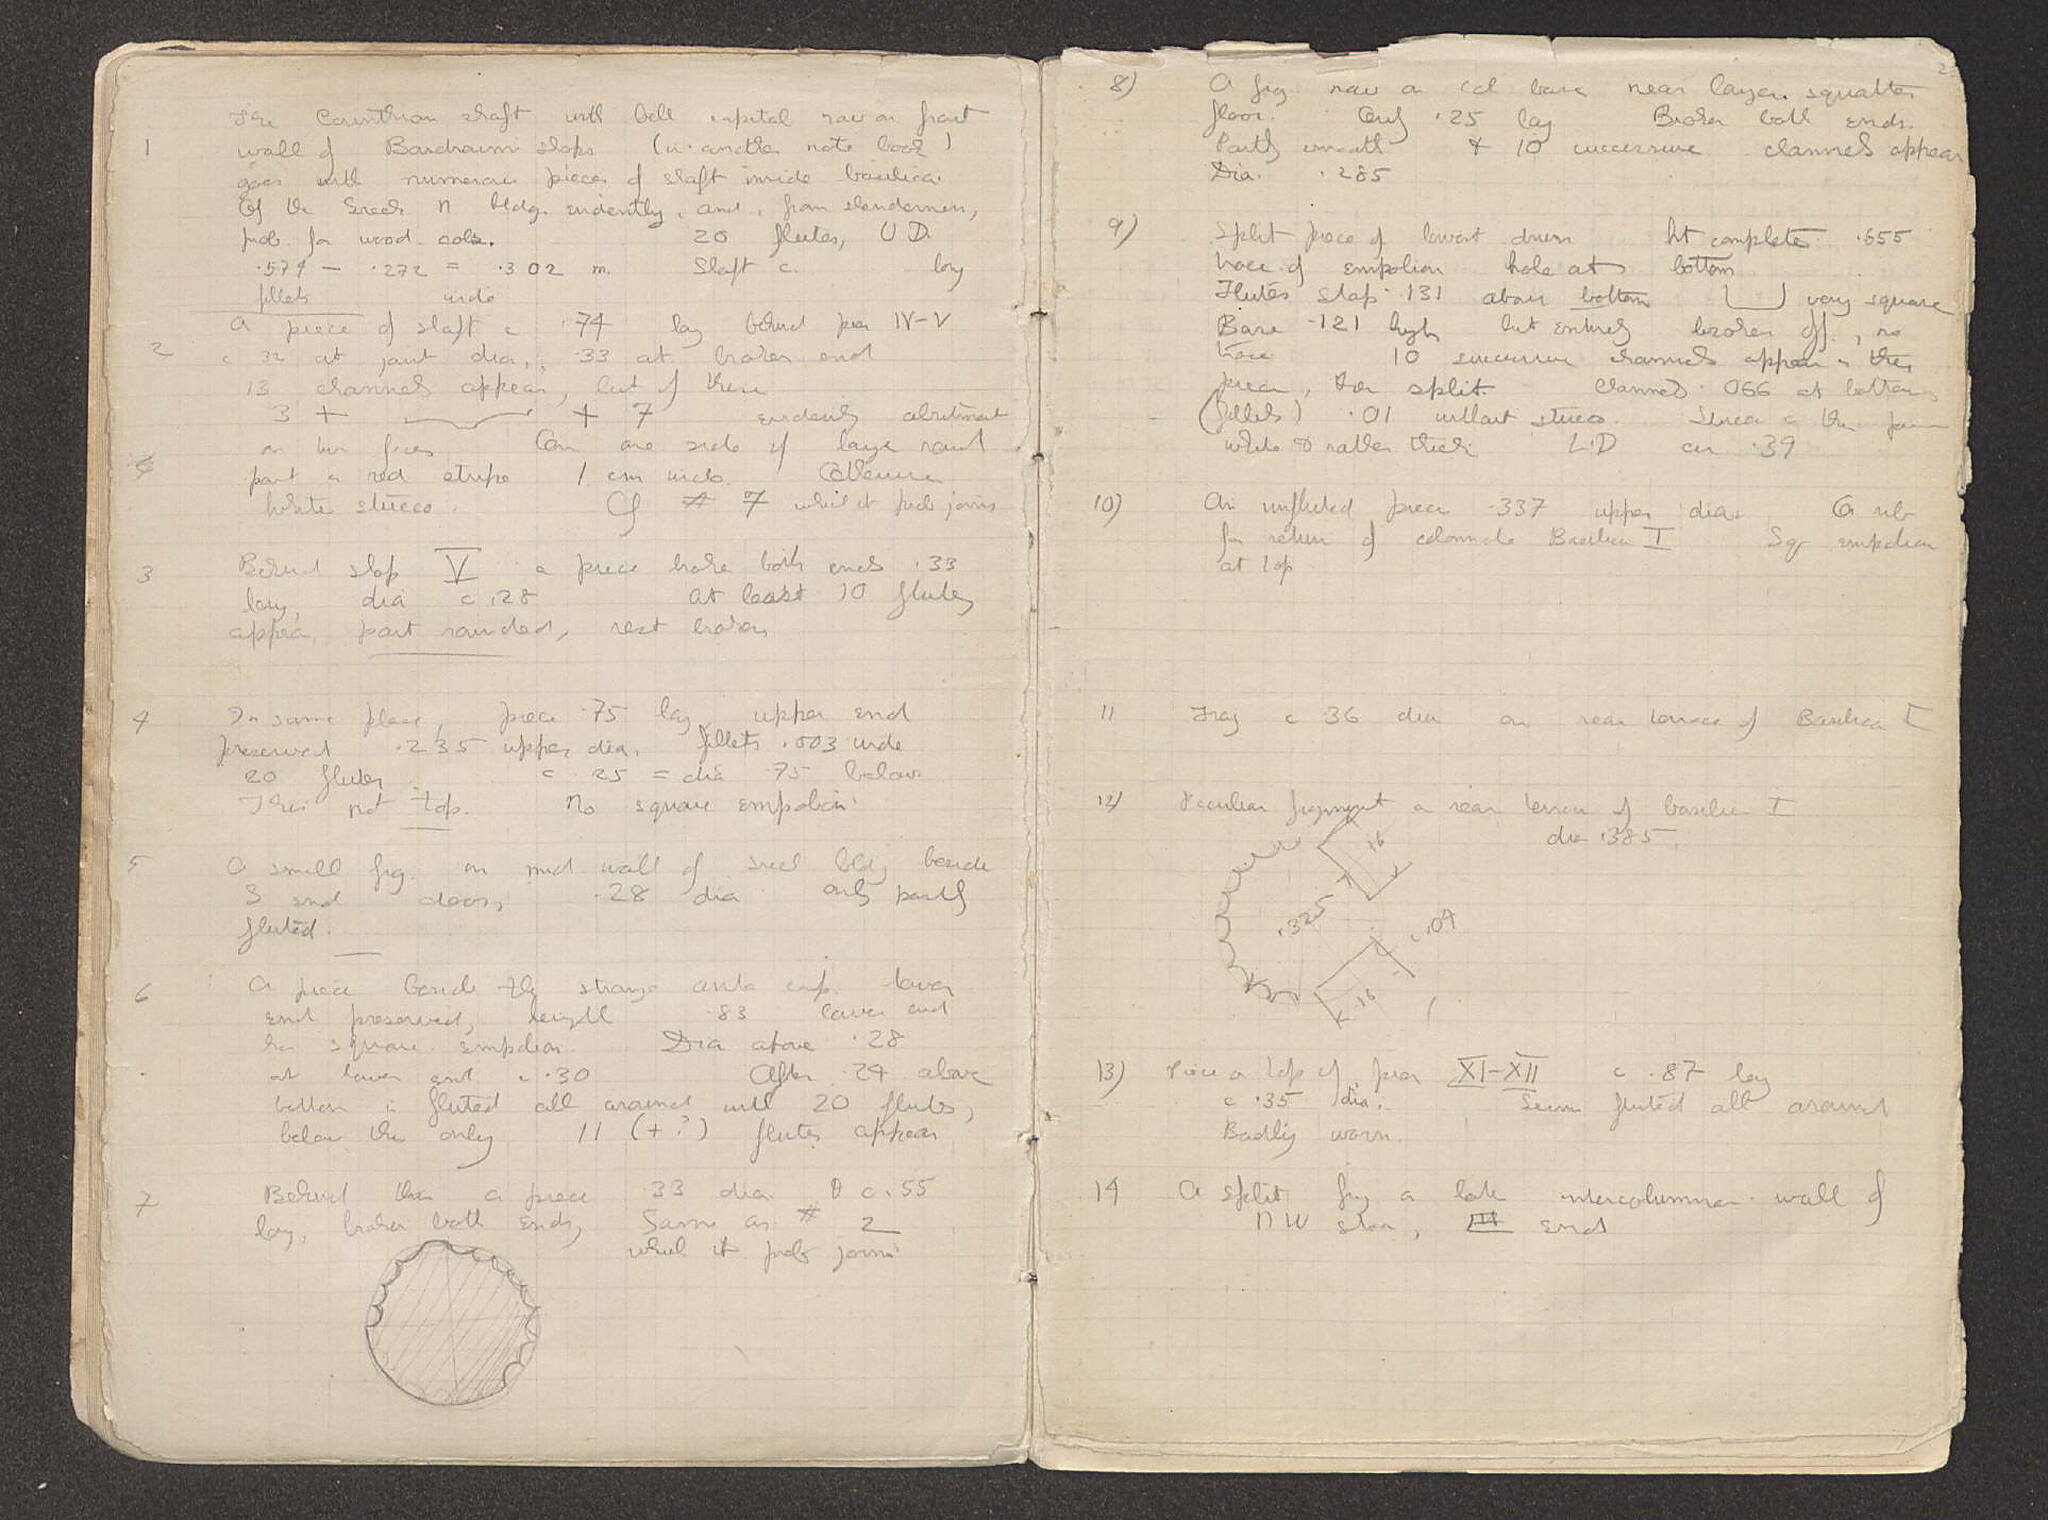 1
The Corinthian shaft with bell capital now on front
wall of Boudroumi shops (in another note book)
goes with numerous pieces of shaft inside basilica.
Of the Greek N bldg. evidently, and, from slenderness,
prob. for wood. cols. 20 flutes, U D.
.574 - .272 = .302 m. Shaft c. long
fillets wide
2
A piece of shaft c .74 long behind pier IV-V
c 32 at joint dia, .33 at broken end
13 channels appear, but of these
3 + + 7 evidently abutment
on two faces On one side of large round
part a red stripe 1 cm wide. Otherwise
white stucco. Cf # 7 which it prob joins
3
Behind shop V a piece broke both ends .33
long, dia c .28 at least 10 flutes
appear, part rounded, rest broken
4
In same place, piece .75 long, upper end
preserved .235 upper dia. fillets .003 wide
20 flutes c .25 = dia .75 below.
This not top. No square empolion
5
A small frg. on mid wall of Greek bldg beside
S end doors, .28 dia only partly
fluted.
6
A piece beside the strange anta cap. lower
end preserved, length .83 lower end
has square empolion Dia above .28
at lower end c .30 After .24 above
bottom is fluted all around with 20 flutes,
below this only 11 (+?) flutes appear
7
Behind this a piece .33 dia & c .55
long, broken both ends, Same as # 2
which it prob joins
2
8)
A frg. now on col base near larger squatter
floor. Only .25 long Broken both ends.
Partly smooth & 10 successive channels appear
Dia. .285
9)
Split piece of lowest drum ht complete .655
trace of empolion hole at bottom
Flutes stop .131 above bottom very square
Base .121 high but entirely broken off, no
trace 10 successive channels appear in this
piece, tho split. Channels .066 at bottom
(fillets) .01 without stucco. Stucco on this
white & rather thick L.D ca .39
10)
An unfluted piece .337 upper dia. A rib
for return of colonnade Basilica I Sq empolion
at top
11
Frag c .36 dia on rear terrace of Basilica I
12)
Peculiar fragment on rear terrace of basilica I
dia .385.
.16
.325
c .04
.16
13)
Piece on top of pier XI-XII c .87 long
c .35 dia. Seems fluted all around
Badly worn.
14
A split frg on late intercolumnar wall of
NW stoa, III end